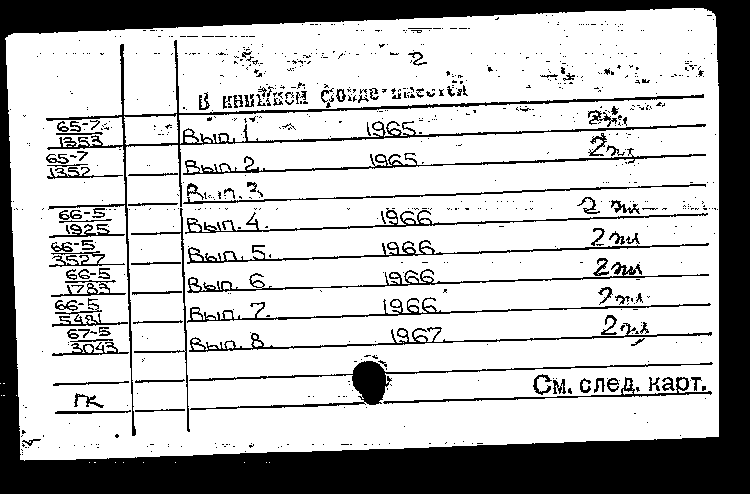 2
В книжном фонде имеется
65-7/1353 Вып. 1. 1965. 2 экз
65-7/1352 Вып. 2. 1965. 2 экз
Вып. 3
66-5/1925 Вып. 4. 1966 2 экз
66-5/3527 Вып. 5. 1966. 2 экз
66-5/1783 Вып. 6. 1966 2 экз
66-5/5481 Вып. 7. 1966. 2 экз
67-5/3043 Вып. 8. 1967. 2 экз
См. след. карт.
ГК